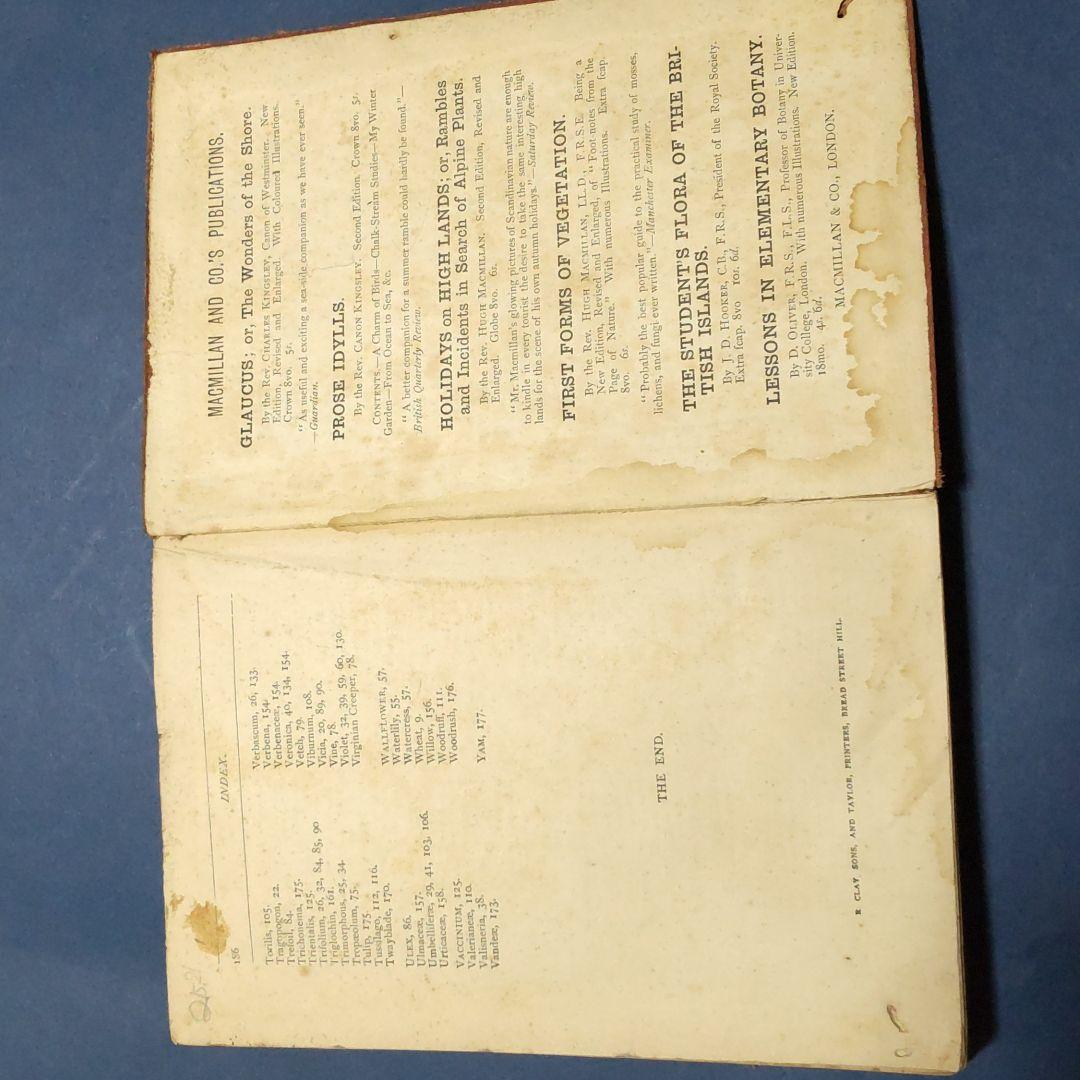 186
INDEX.
Torilis, 105.
Tragopogon, 22.
Trefoil, 84.
Trichonema, 175.
Trientalis, 125.
Trifolium, 26, 32, 84, 85, 90
Triglochin, 161.
Trimorphous, 25, 34.
Tropæolum, 75.
Tulip, 175.
Tussilago, 112, 116.
Twayblade, 170.
ULEX, 86.
Ulmaceæ, 157.
Umbelliferæ, 29, 41, 103, 106.
Urticaceæ, 158.
VACCINIUM, 125.
Valerianeæ, 110.
Valisneria, 38.
Vandeæ, 173.
Verbascum, 26, 133.
Verbena, 154.
Verbenaceæ, 154.
Veronica, 40, 134, 154.
Vetch, 79.
Viburnum, 108.
Vicia, 20, 89, 90.
Vine, 78.
Violet, 32, 39, 59, 60, 130.
Virginian Creeper, 78.
WALLFLOWER, 57.
Waterlily, 55.
Watercress, 57.
Wheat, 9.
Willow, 156.
Woodruff, 111.
Woodrush, 176.
YAM, 177.
THE END.
R CLAY SONS, AND TAYLOR, PRINTERS, BREAD STREET HILL.
MACMILLAN AND CO.'S PUBLICATIONS.
GLAUCUS; or, The Wonders of the Shore.
By the Rev. CHARLES KINGSLEY, Canon of Westminster. New
Edition, Revised and Enlarged. With Coloured Illustrations.
Crown 8vo. 5s.
"As useful and exciting a sea-side companion as we have ever seen."
—Guardian.
PROSE IDYLLS.
By the Rev. CANON KINGSLEY. Second Edition. Crown 8vo. 5s.
CONTENTS.—A Charm of Birds—Chalk-Stream Studies—My Winter
Garden—From Ocean to Sea, &c.
"A better companion for a summer ramble could hardly be found."—
British Quarterly Review.
HOLIDAYS on HIGH LANDS; or, Rambles
and Incidents in Search of Alpine Plants.
By the Rev. HUGH MACMILLAN. Second Edition, Revised and
Enlarged. Globe 8vo. 6s.
"Mr. Macmillan's glowing pictures of Scandinavian nature are enough
to kindle in every tourist the desire to take the same interesting high
lands for the scene of his own autumn holidays."—Saturday Review.
FIRST FORMS OF VEGETATION.
By the Rev. HUGH MACMILLAN, LL.D., F.R.S.E. Being a
New Edition, Revised and Enlarged, of "Foot-notes from the
Page of Nature." With numerous Illustrations. Extra fcap.
8vo. 6s.
"Probably the best popular guide to the practical study of mosses,
lichens, and fungi ever written."—Manchester Examiner.
THE STUDENT'S FLORA OF THE BRI-
TISH ISLANDS.
By J. D. HOOKER, C.B., F.R.S., President of the Royal Society.
Extra fcap. 8vo 10s. 6d.
LESSONS IN ELEMENTARY BOTANY.
By D. OLIVER, F.R.S., F.L.S., Professor of Botany in Univer-
sity College, London. With numerous Illustrations. New Edition.
18mo. 4s. 6d.
MACMILLAN & CO., LONDON.